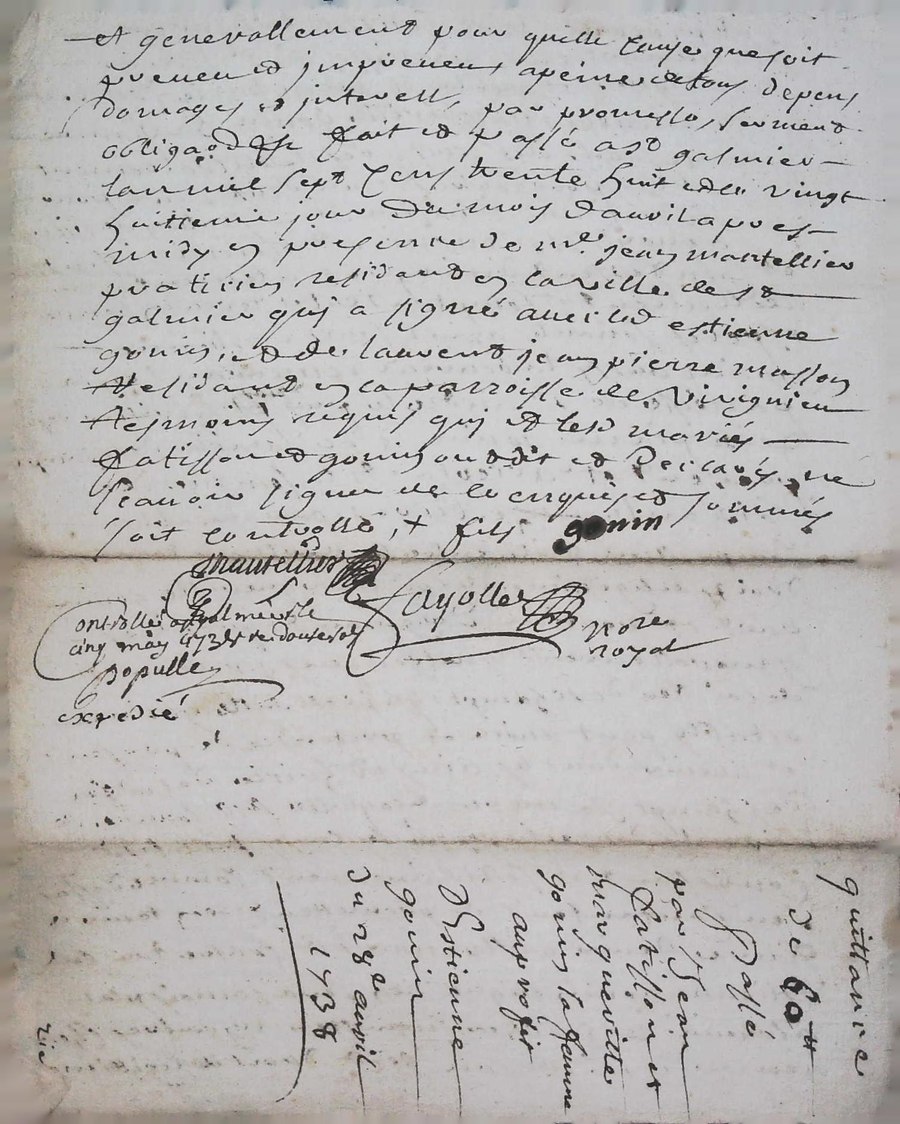 et generallement pour quelle cause que soit
preveu et impreveu, a peine de tous depens
domages et interest, par promesse, serment
obliga~on &c fait et passé a st galmier
lan mil sept cens trente huit et le vingt
huitieme jour du mois d'avril apres
midy en presence de me jean mantellier
praticien residant en la ville de st
galmier qui a signé avec led estienne
gonin, et de laurent jean pierre masson
residant en la parroisse de Virignieu
tesmoins requis qui et lesd mariés
fatisson et gonin ont dit et declarés ne
scavoir signer de ce enquis et sommés
soit controllé, + fils gonin
Mantellier
Fayolle nore
royal
Controllé a st galmier le
cinq may 1738 re douze sols
Populle
expedié
quittance
de 60 tt
Passé
par Jean
fatisson et
margueritte
gonin sa famme
au profit
d'Estienne
gonin
du 28e avril
1738